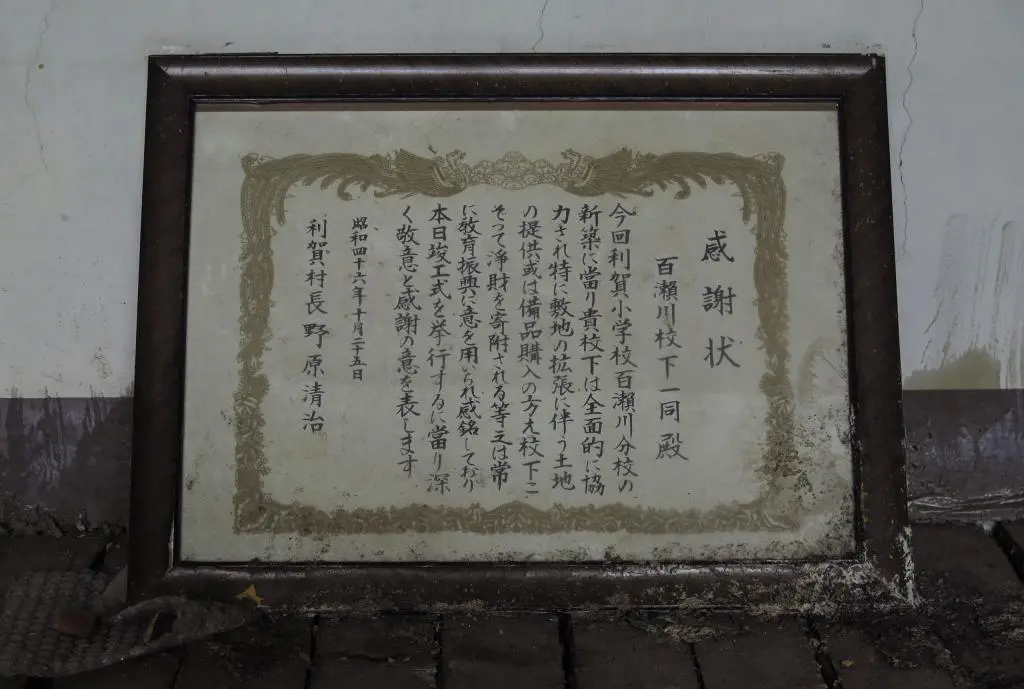 感謝状
百瀬川校下一同殿
今回利賀小学校百瀬川分校の
新築に當り貴校下は全面的に協
力され特に敷地の拡張に伴う土地
の提供或は備品購入の方え校下こ
ぞって浄財を寄附される等之は常
に教育振興に意を用いられ感銘しており
本日竣工式を挙行するに當り深
く敬意と感謝の意を表します
昭和四十六年十月二十五日
利賀村長野原清治